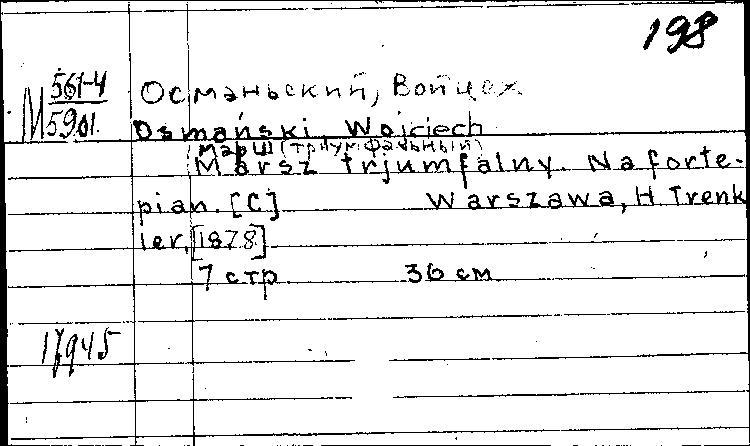 198
М 561-4
5901
Османьский, Войцех
Osmański, Wojciech
Марш (триумфальный)
Marsz trjumfalny. Na forte-
pian. [C] Warszawa, H. Trenk
ler, [1878]
7 стр 36 см
17945